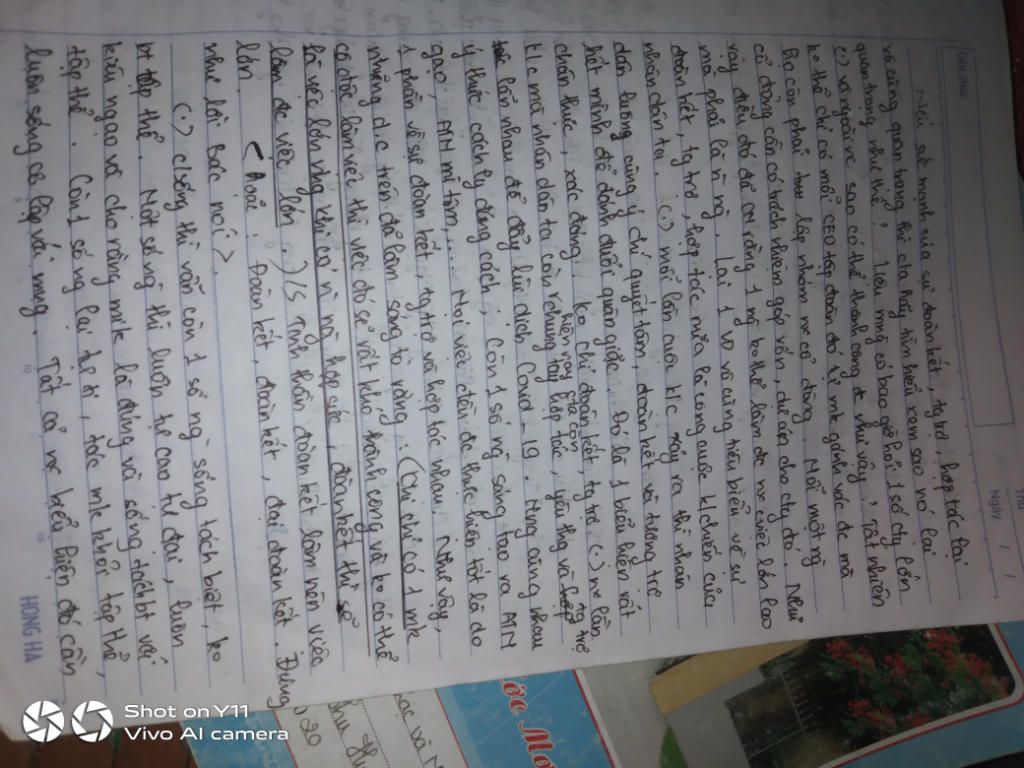 GHI ĐIỂM
Thứ
Ngày / /
Nói sức mạnh của sự đoàn kết, tg trợ, hợp tác lại
vô cùng quan trọng thì cta hãy tìm hiểu xem sao nó lại
quan trọng như thế. 1 lẽ có bao giờ hỏi 1 số cty lớn
(.) và ngoài nc sao có thể thành công đc như vậy, Tất nhiên
ko thể chỉ có mỗi CEO tập đoàn đó tự mk gánh vác đc mà
họ còn phải lập nhóm cổ đông. Mỗi một ng
cổ đông cần có trách nhiệm góp vốn, cho cty đó. Như
vậy điều đó đã cm rằng 1 ng ko thể làm đc việc lớn lao
mà phải là n` ng. Lại 1 vd vô cùng tiêu biểu về sự
đoàn kết, tg trợ, hợp tác nữa là công cuộc k/chiến của
nhân dân ta. (.) mỗi lần cuộc k/c nổ ra thì nhân
dân luôn cùng ý chí quyết tâm, đoàn kết và tương trợ
hết mình để đánh đuổi quân giặc. Đó là 1 biểu hiện rất
chân thực, xác đáng. Ko chỉ đoàn kết, tg trợ (.) lần
k/c mà nhân dân ta còn hiện nay hợp tác, yêu thg và tg trợ
lẫn nhau để đẩy lùi dịch Covid-19. cùng nhau
ý thức cách ly đúng cách; Còn 1 số ng sáng tạo ra ATM
gạo, ATM mì tôm,... Mọi việc đều đc thực hiện tốt là do
1 phần về sự đoàn kết, tg trợ và hợp tác nhau. Như vậy,
những d/c trên đã làm sáng tỏ rằng: (Chỉ có 1 mk
cá độc làm việc thì việc đó sẽ rất khó thành công và ko có thể
là việc lớn nhg khi có n` ng hợp sức, đoàn kết thì sẽ
làm đc việc lớn.) /S Tinh thần đoàn kết làm nên việc
lớn. < Hoặc: Đoàn kết, đoàn kết, đại đoàn kết. Đúng
như lời Bác nói >.
(.) c/sống thì vẫn còn 1 số ng` sống tách biệt, ko
tập thể. Một số ng` thì luôn tự cao tự đại, luôn
kiêu ngạo và cho rằng mk là đúng và sống tách bt với
tập thể. Còn 1 số ng lại tự ti, tách mk khỏi tập thể,
luôn sống cô lập với mng. Tất cả biểu hiện đó cần
HỒNG HÀ
Shot on Y11
Vivo AI camera